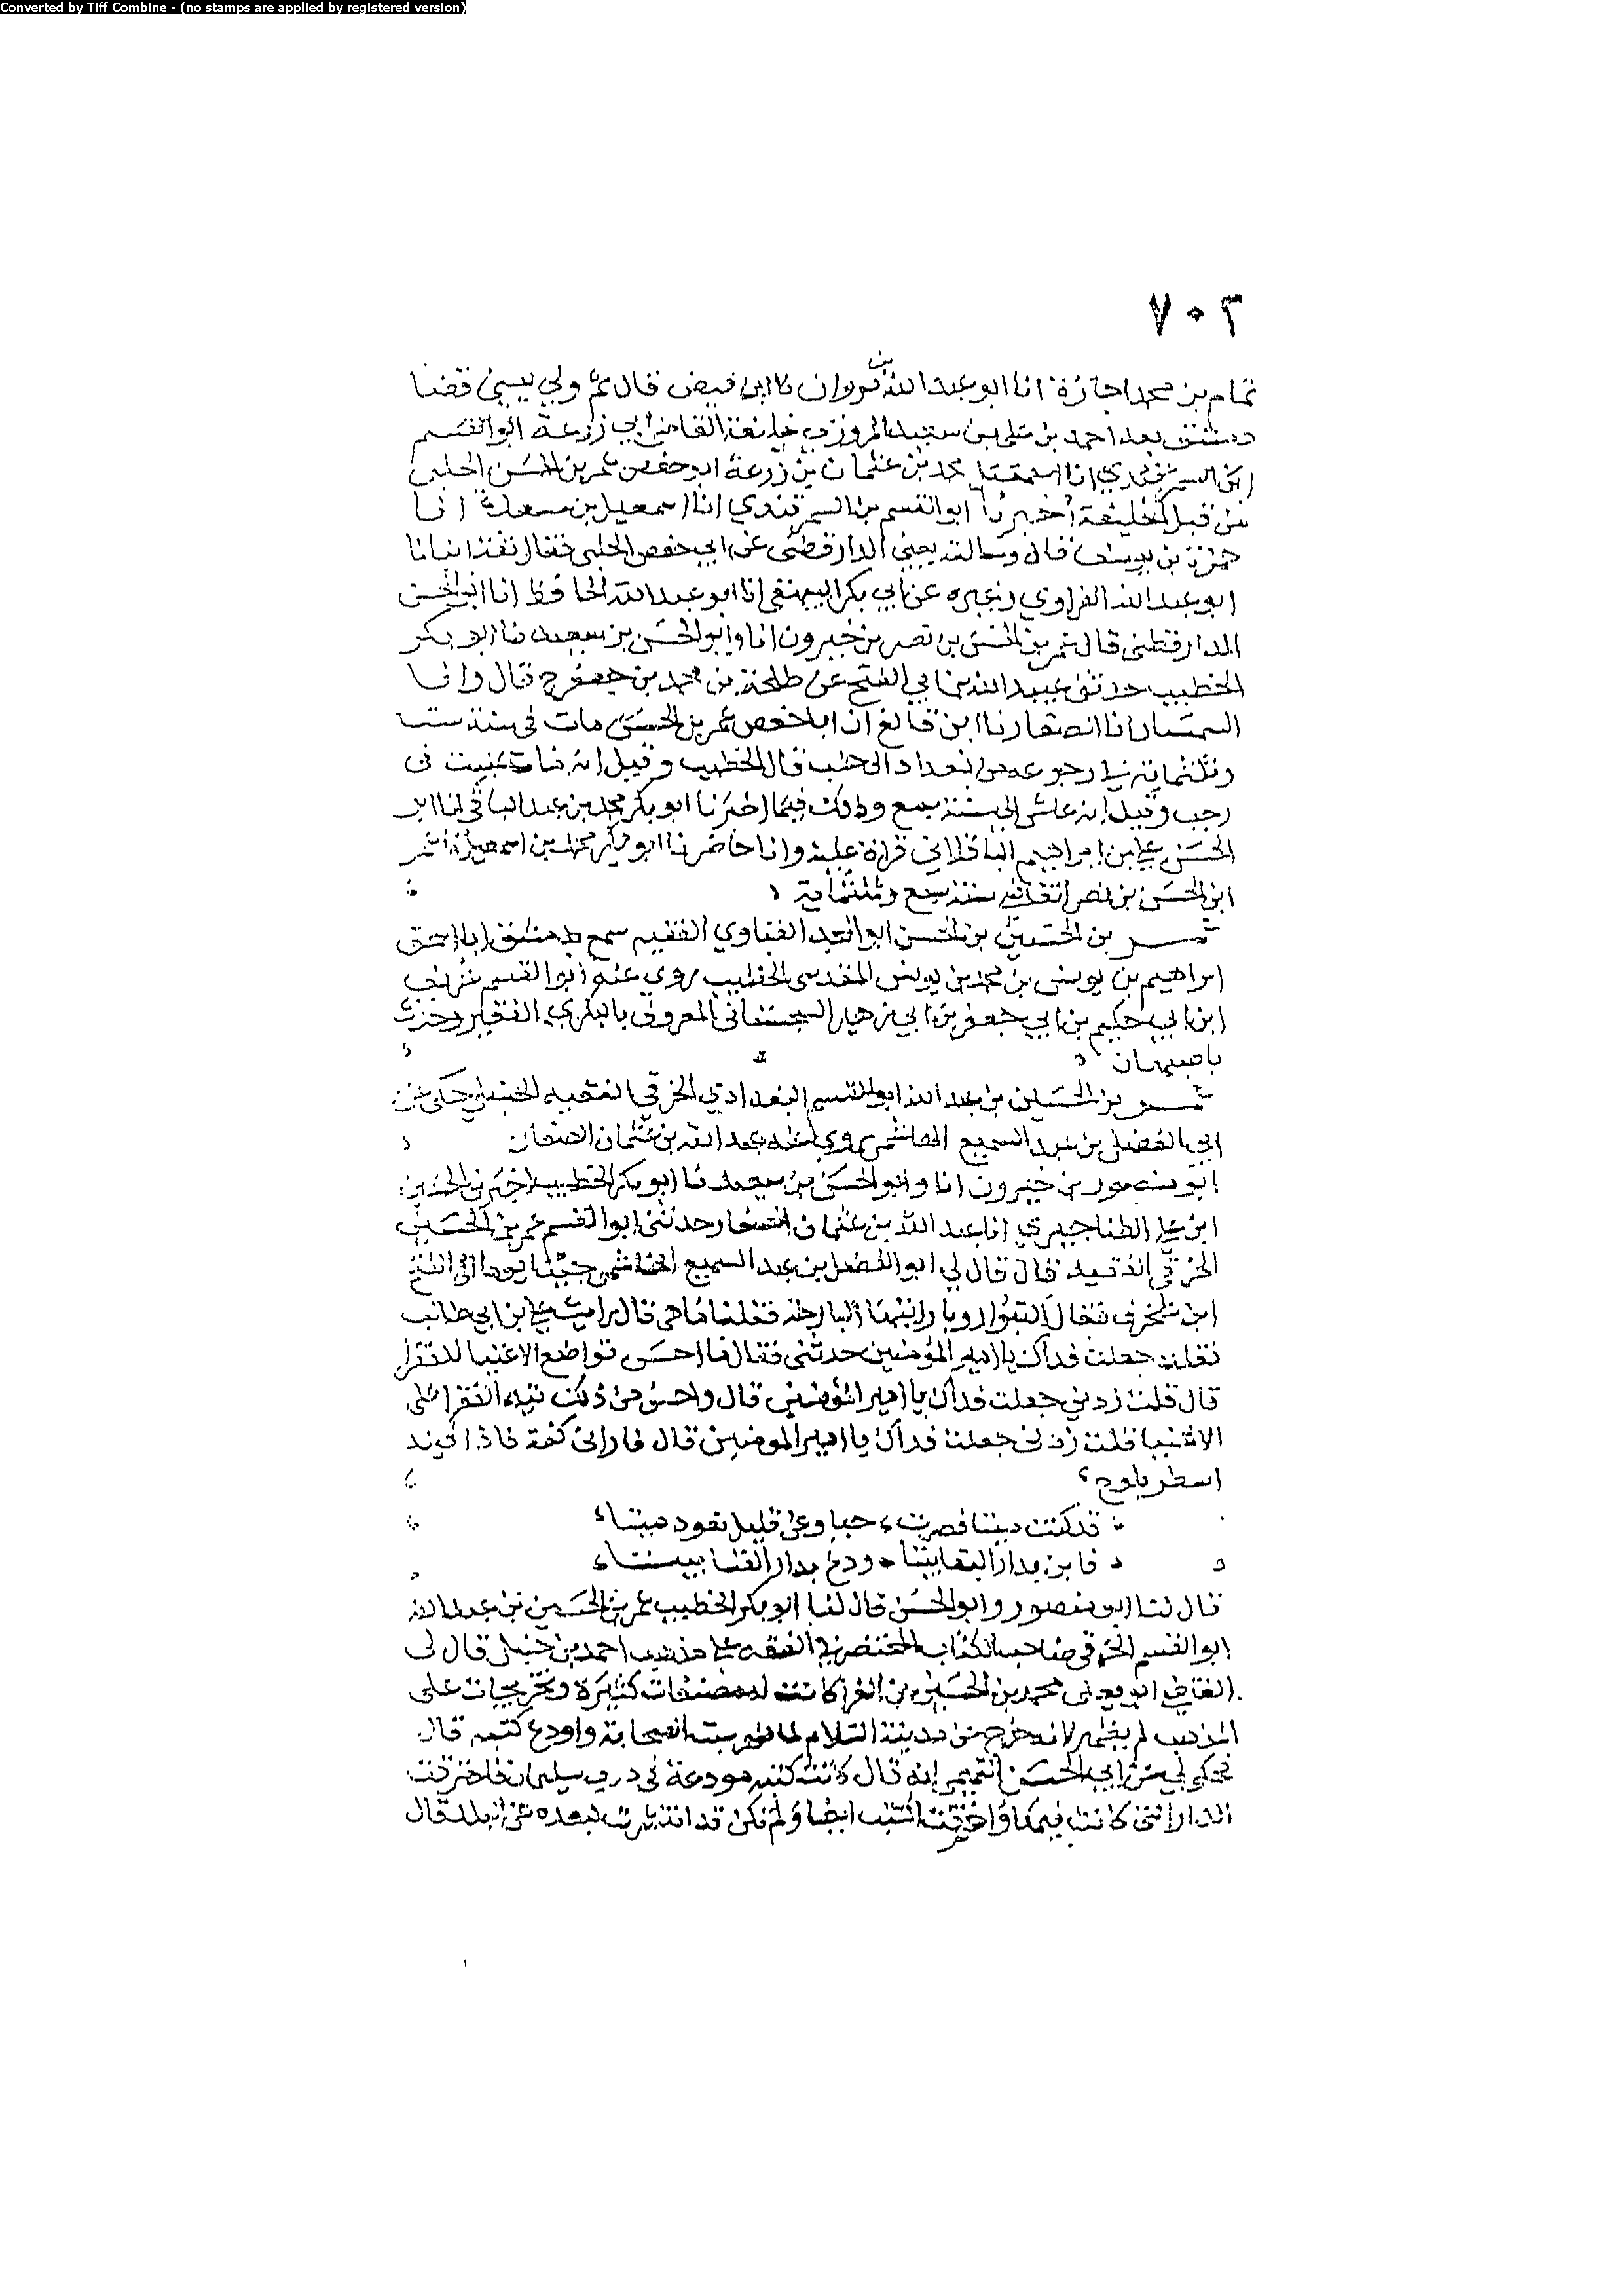 Converted by Tiff Combine - (no stamps are applied by registered version)
٧٠٢
تمام بن محمد اجازة انا ابو عبد الله بن مروان نا ابن فيض قال ثم ولي يعني قضا
دمشق بعد احمد بن علي بن سعيد المروزي خليفة القاضي ابي زرعة ابو القسم
ابن السمرقندي انا محمد بن عثمان بن زرعة ابو حفص عمر بن الحسن الحلبي
من قبل الخليفة أخبرنا ابو القسم بن السمرقندي انا اسمعيل بن مسعدة انا
حمزة بن يوسف قال وسالته يعني الدارقطني عن ابي حفص الحلبي فقال ثقة انبانا
ابو عبد الله الفراوي وغيره عن ابي بكر البيهقي انا ابو عبد الله الحافظ انا ابو الحسن
الدارقطني قال عمر بن الحسن بن نصر بن خيرون انا وابو الحسن بن سعيد نا ابو بكر
الخطيب حدثني عبيد الله بن ابي الفتح عن طلحة بن محمد بن جعفر ح قال وانا
السمسار انا الصفار نا ابن قانع ان ابا حفص عمر بن الحسن مات في سنة ست
وثلثماية في رجوعه من بغداد الى حلب قال الخطيب وقيل انه مات في
رجب وقيل انه عاش الى سنة سبع وذلك فيما اخبرنا ابو بكر محمد بن عبد الباقي انا ابو
الحسن علي بن ابراهيم الباقلاني قراة عليه وانا حاضر نا ابو بكر محمد بن اسمعيل نا عمر
ابن الحسن بن نصر سنة سبع وثلثماية
عمر بن الحسين بن الحسن ابو الفقيه سمع بدمشق ابا اسحق
ابراهيم بن يونس بن محمد بن يونس المقدسي الخطيب روي عنه ابو القسم
ابن ابي حكيم بن ابي جعفر بن ابي السجستاني المعروف بالبكري الفقير
باصبهان
عمر بن الحسين بن عبد الله ابو القسم البغدادي الخرقي الفقيه الحنبلي حكى عن
ابي الفضل بن عبد السميع الهاشمي روي عنه عبد الله بن عثمان الصفار
ابو منصور بن خيرون انا وابو الحسن بن سعيد نا ابو بكر الخطيب اخبرني الحسين
ابن علي الطناجيري انا عبد الله بن عثمان الصفار حدثني ابو القسم عمر بن الحسين
الخرقي الفقيه قال قال لي ابو الفضل بن عبد السميع الهاشمي جينا يوما الى الفتح
ابن شخرف فقال رويا رايتها البارحة فقلنا ما هي قال رايت علي بن ابي طالب
فقلت جعلت فداك يا امير المؤمنين حدثني فقال ما احسن تواضع الاغنيا للفقرا
قال قلت زدني جعلت فداك يا امير المؤمنين قال واحسن من ذلك تيه الفقرا على
الاغنيا قلت زدني جعلت فداك يا امير المومنين قال فاراني كفه فاذا فيه
اسطر يلوح
قد كنت ميتا فصرت حيا وعن قليل تعود ميتا
فابن بدار البقا بيتا ودع بدار الفنا بيتا
قال لنا ابو منصور وابو الحسن قال لنا ابو بكر الخطيب عمر بن الحسين بن عبد الله
ابو القسم الخرقي صاحب الكتاب المختصر في الفقه على مذهب احمد بن حنبل قال لي
القاضي ابو يعلى محمد بن الحسين بن الفرا كانت له مصنفات كثيرة وتخريجات على
المذهب لم يظهر لانه خرج من مدينة السلام لما ظهر سب الصحابة واودع كتبه قال
فحكي لي عن ابي الحسن التميمي انه قال كانت كتبه مودعة في درب سليمان فاحترقت
الدار التي كانت فيها واحترقت الكتب ايضا ولم تكن قد انتشرت لبعده عن البلد قال